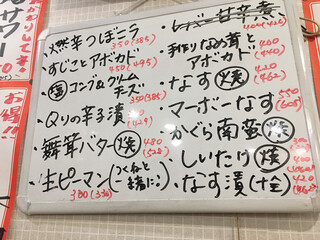 燃辛つぼニラ
350(385)
すじことアボカド
450(495)
㊙コンブ&クリームチーズ
350(385)
Qりの辛子漬
(429)
舞茸バター焼
480
(528)
生ピーマン(つくねと一緒に♪)
300(330)
レバー甘辛煮
手作りなめ茸とアボカド
400
(440)
なす焼
420
(462)
マーボーなす
550
(605)
かぐら南蛮焼
300
しいたけ焼
400
なす漬(十全)
420
(462)
お得!!